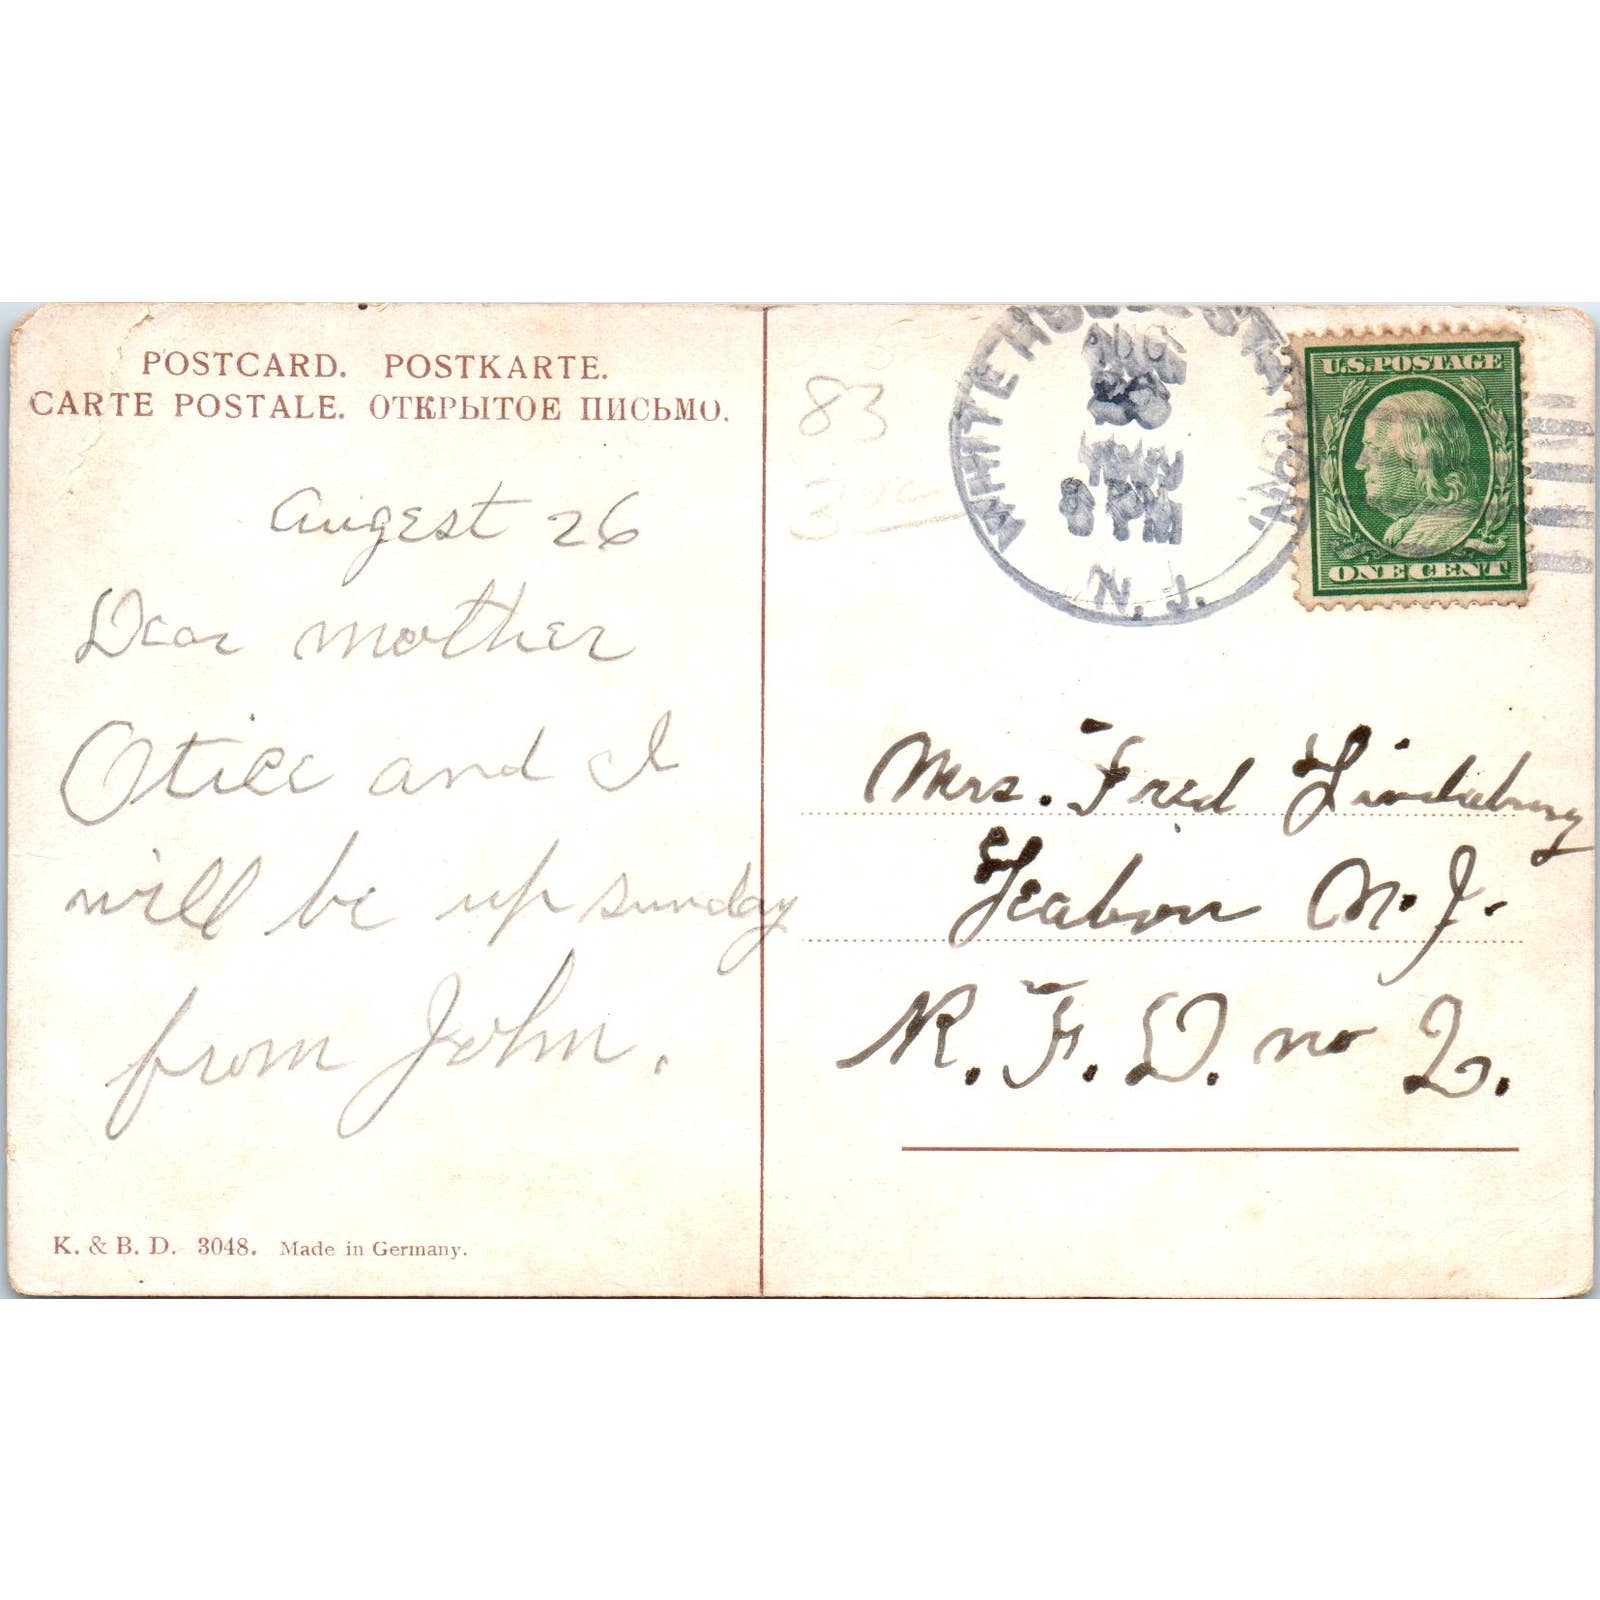 POSTCARD. POSTKARTE.
CARTE POSTALE. ОТКРЫТОЕ ПИСЬМО.
Augest 26
Dear mother
and I
will be up sunday
from John.
K. & B. D. 3048. Made in Germany.
83
3
WHITEHOUSE STATION
AUG
8 PM
N. J.
U.S. POSTAGE
ONE CENT
Mrs. Fred
N. J.
R. F. D. no 2.